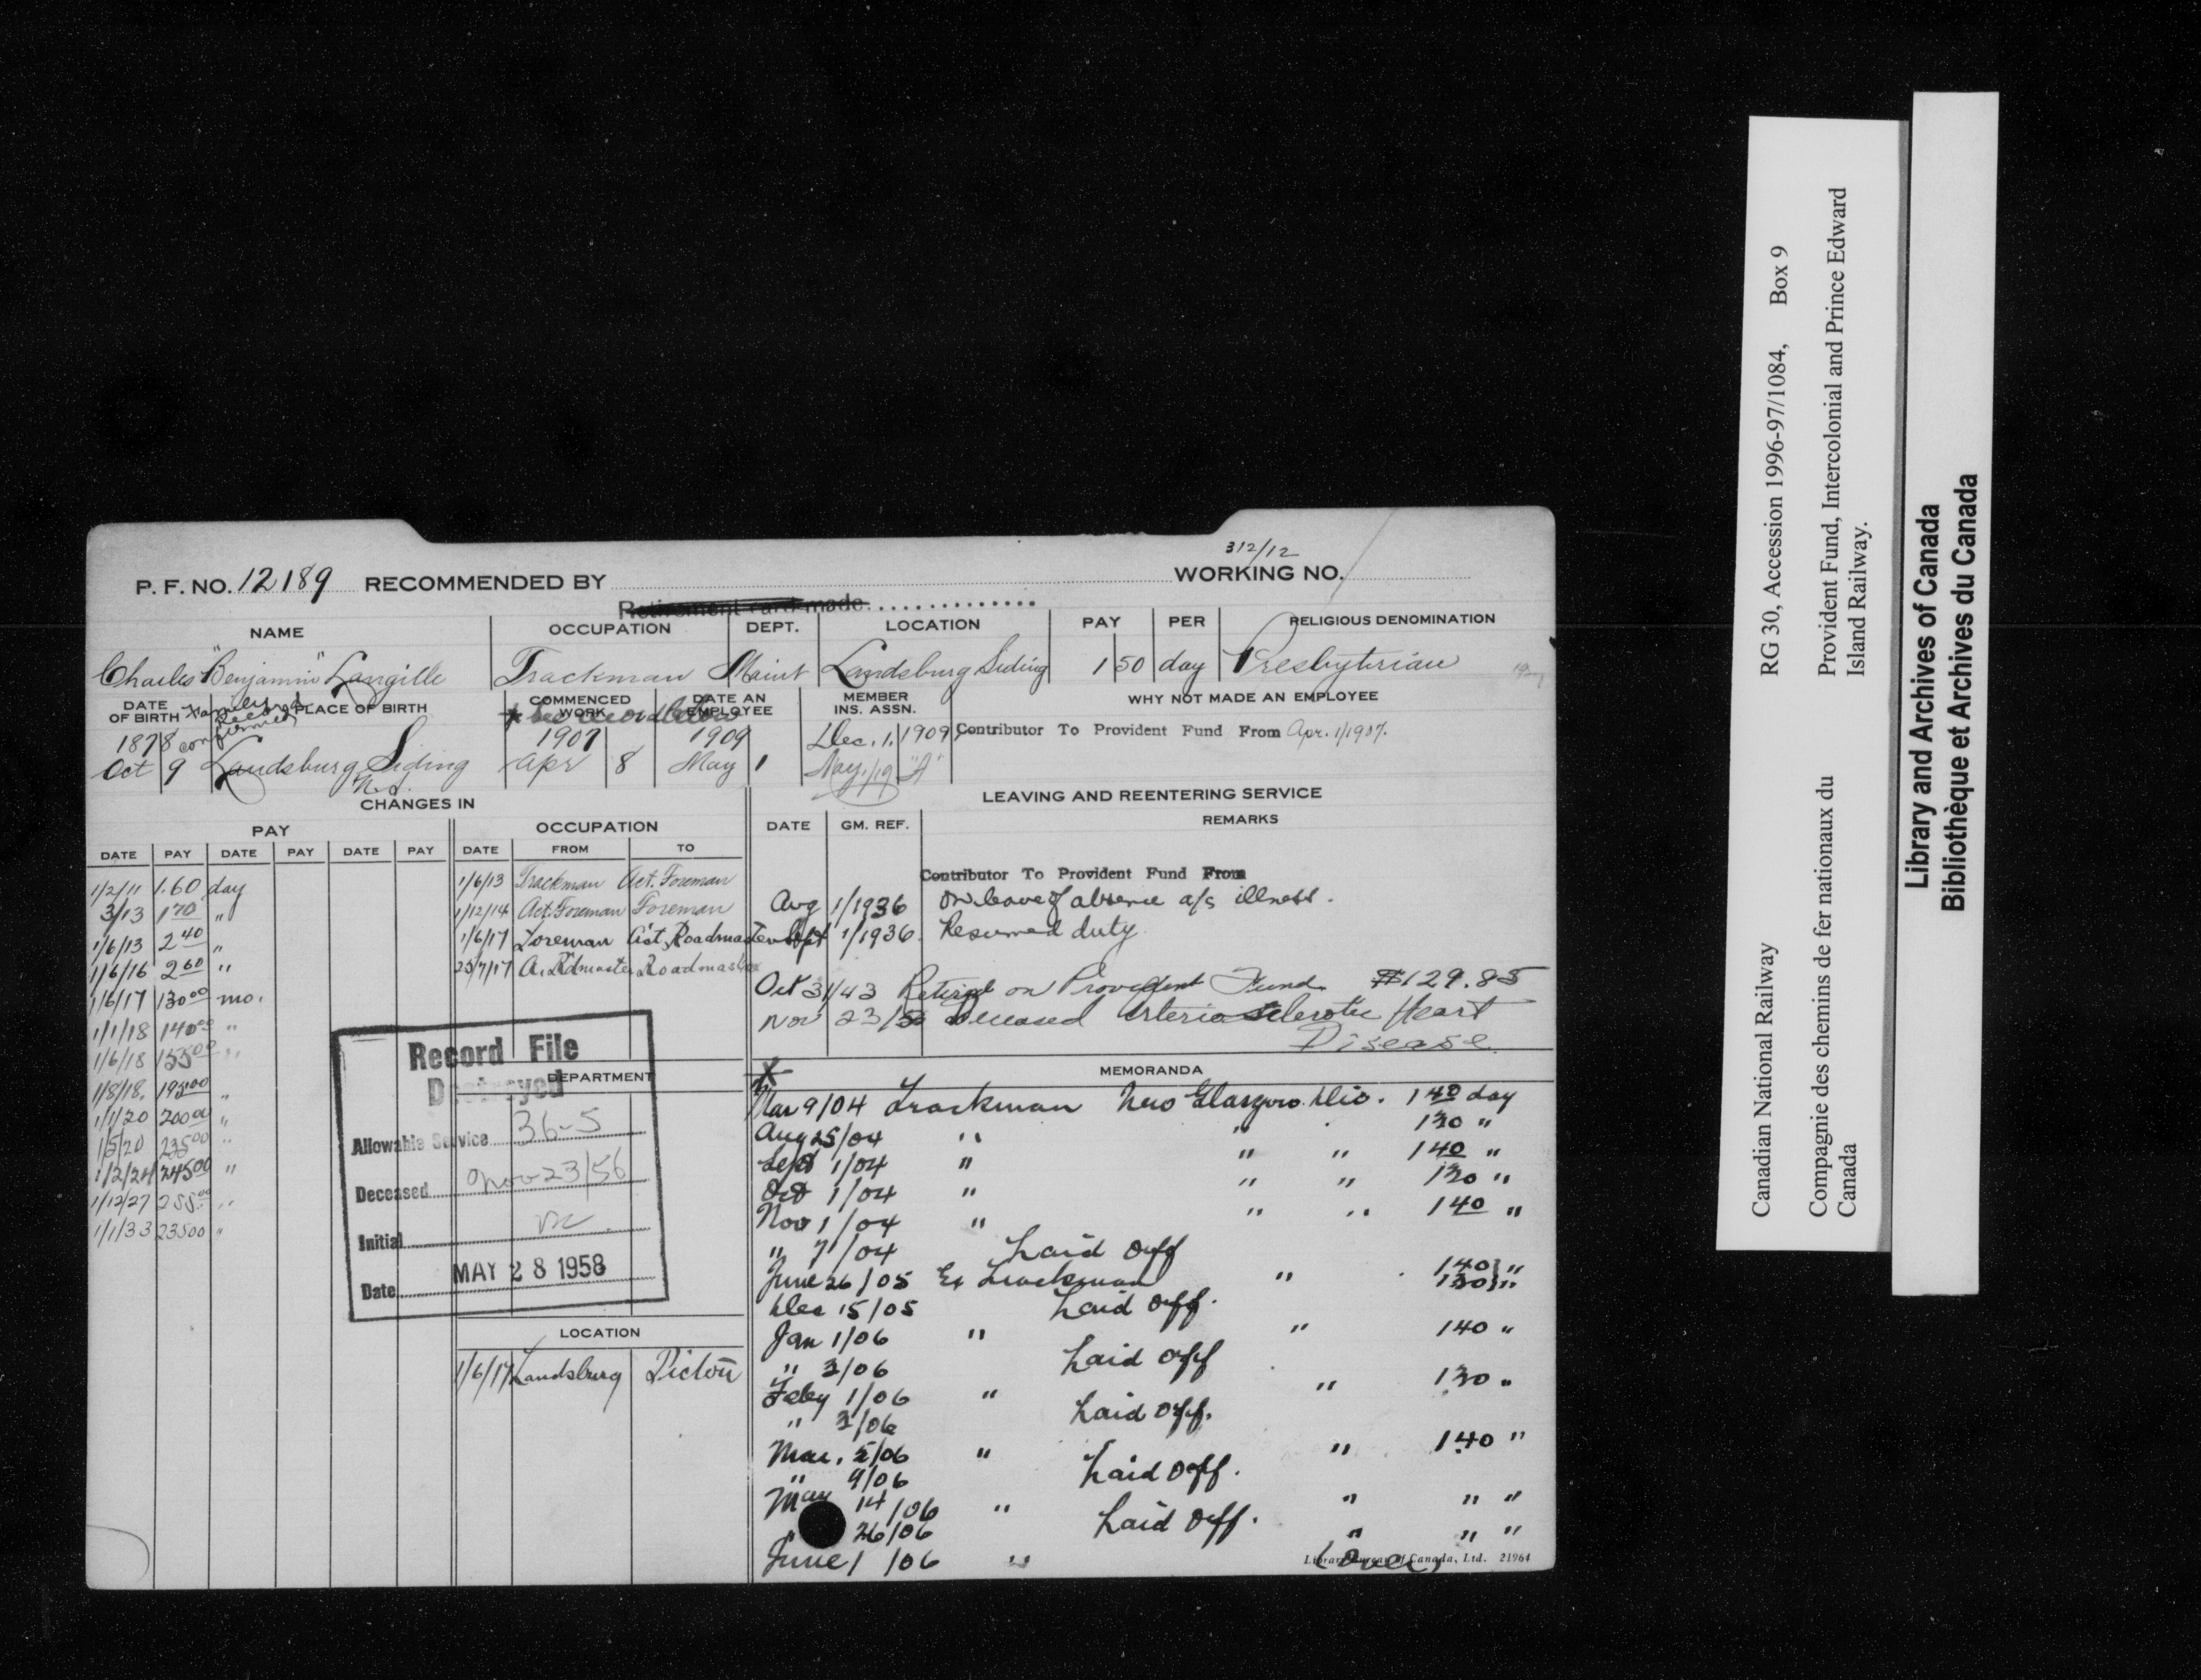 312/12
P. F. NO. 12189 RECOMMENDED BY WORKING NO.
Retirement card made
NAME OCCUPATION DEPT. LOCATION PAY PER RELIGIOUS DENOMINATION
Charles "Benjamin" Langille Trackman Maint Landsburg Siding 1 50 day Presbyterian
DATE OF BIRTH Family Record confirmed PLACE OF BIRTH COMMENCED WORK DATE AN EMPLOYEE MEMBER INS. ASSN. WHY NOT MADE AN EMPLOYEE
* See record below
1878 1907 1909 Dec. 1. 1909 Contributor To Provident Fund From Apr. 1/1907.
Oct 9 Landsburg Siding Apr 8 May 1 May 1/19 "A"
N.S.
CHANGES IN
PAY
DATE PAY DATE PAY DATE PAY
1/2/11 1.60 day
3/13 1 70 "
1/6/13 2 40 "
1/6/16 2 60 "
1/6/17 130 00 mo.
1/1/18 140 00 "
1/6/18 155 00 "
1/8/18. 195 00 "
1/1/20 200 00 "
1/5/20 235 00 "
1/2/24 245 00 "
1/12/27 255 00 "
1/1/33 235 00 "
OCCUPATION
DATE FROM TO
1/6/13 Trackman Act. Foreman
1/12/14 Act. Foreman Foreman
1/6/17 Foreman Act. Roadmaster
25/7/17 A. Rdmaster Roadmaster
DEPARTMENT
Record File
Destroyed
Allowable Service 36-5
Deceased Nov 23/56
Initial
Date MAY 28 1958
LOCATION
1/6/17 Landsburg Pictou
LEAVING AND REENTERING SERVICE
DATE GM. REF. REMARKS
Contributor To Provident Fund From
Aug 1/1936 On leave of absence a/c illness.
Sept 1/1936 Resumed duty
Oct 31/43 Retired on Provident Fund $129.85
Nov 23/56 Deceased Arteriosclerotic Heart
Disease
X MEMORANDA
Mar 9/04 Trackman New Glasgow Div. 1 40 day
Aug 25/04 " " 130 "
Sept 1/04 " " " 1 40 "
Oct 1/04 " " " 130 "
Nov 1/04 " " " 1 40 "
" 7/04 Laid Off
June 26/05 Ex Trackman " 140 } "
130 } "
Dec 15/05 Laid Off.
Jan 1/06 " " 140 "
" 3/06 Laid Off
Feby 1/06 " " 130 "
" 3/06 Laid Off.
Mar. 5/06 " " 1.40 "
" 9/06 Laid Off.
May 14/06 " " " "
" 26/06 Laid Off. " " "
June 1/06 "
(Over)
Library Bureau of Canada, Ltd. 21964
Canadian National Railway RG 30, Accession 1996-97/1084, Box 9
Compagnie des chemins de fer nationaux du Canada
Provident Fund, Intercolonial and Prince Edward Island Railway.
Library and Archives of Canada
Bibliothèque et Archives du Canada